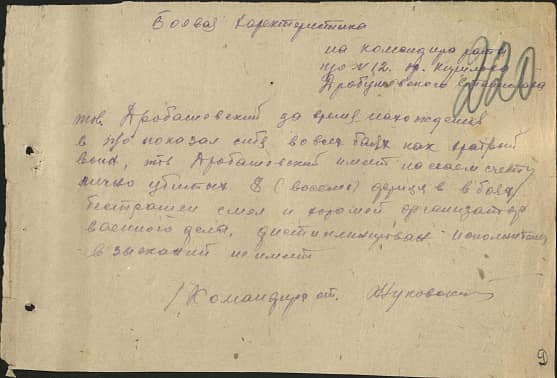 Боевая характеристика
на командира роты
п/о №12
220
тов. Драбашовский за время нахождения
в п/о показал себя во всех боях как храбрый
воин, тов. Драбашовский имеет на своем счету
лично убитых 8 (восемь) в бою
бесстрашен смел и хороший организатор
военного дела, дисциплинирован
взысканий не имеет
Командир от. Жуковский
9